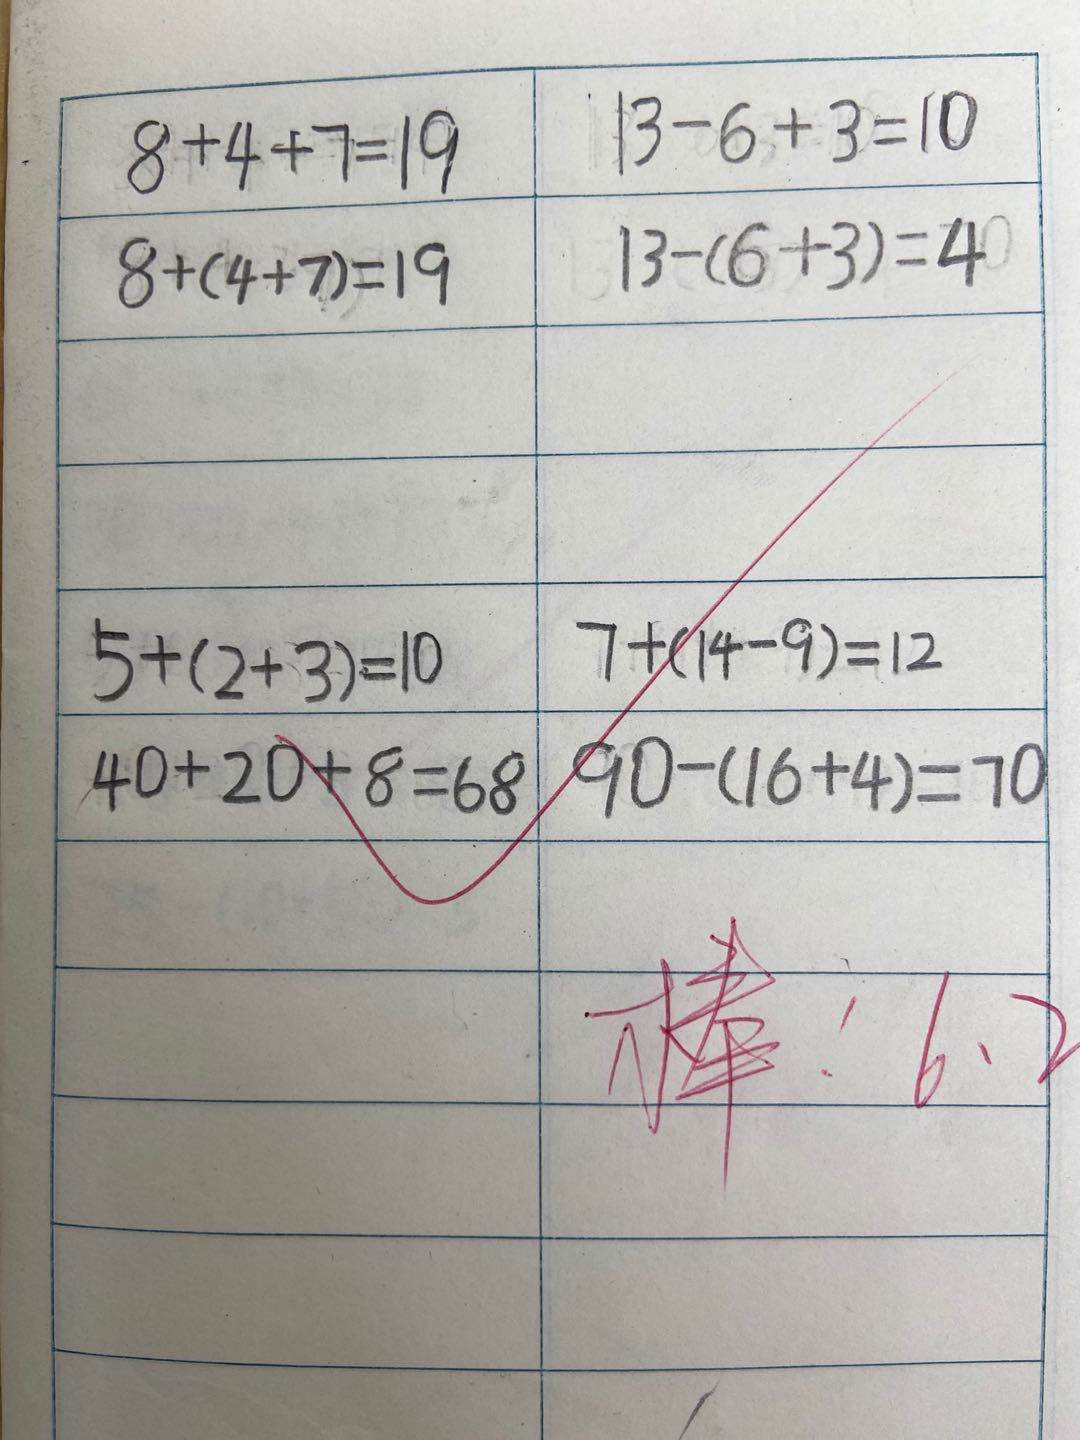 8+4+7=19
13-6+3=10
8+(4+7)=19
13-(6+3)=4
5+(2+3)=10
7+(14-9)=12
40+20+8=68
90-(16+4)=70
棒! 6、2